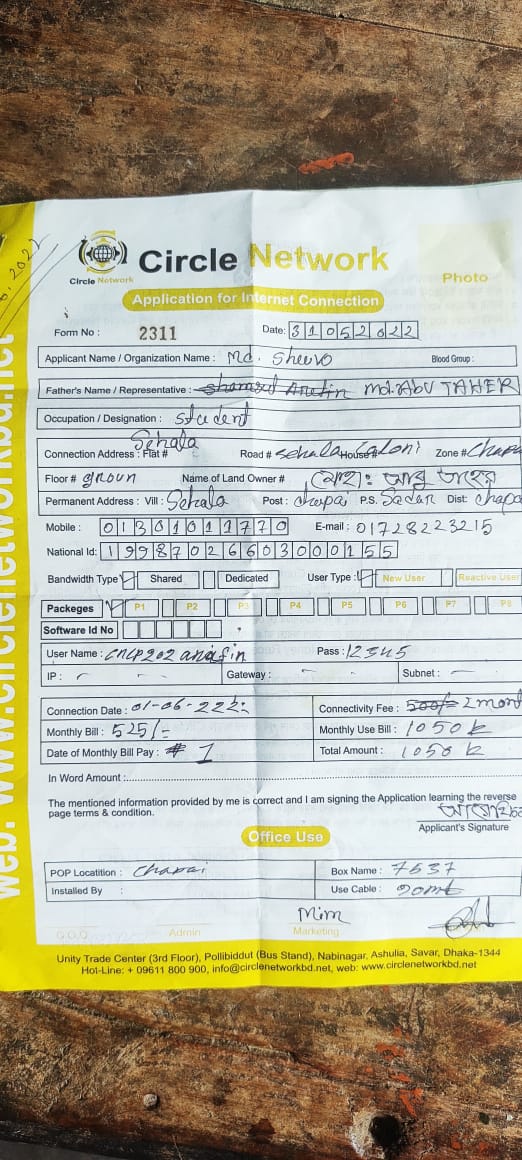 Circle Network
Circle Network
Photo
Application for Internet Connection
Form No : 2311 Date: 31052022
Applicant Name / Organization Name : Md. Sheevo Blood Group :
Father's Name / Representative : Md. Abu TAHER
Occupation / Designation : Student
Connection Address : Flat # Sehala Road # Sehala Coloni House # Zone # Chapa
Floor # groun Name of Land Owner # মোহাঃ আবু তাহের
Permanent Address : Vill : Sehala Post : Chapai P.S. Sadar Dist: Chapa
Mobile : 01301011770 E-mail : 01728223215
National Id: 19987026603000155
Bandwidth Type Shared Dedicated User Type : New User Reactive User
Packeges P1 P2 P3 P4 P5 P6 P7 P8
Software Id No
User Name : Pass : 12345
IP : Gateway : Subnet :
Connection Date : 01-06-22 Connectivity Fee : 500/= 2 mont
Monthly Bill : 525/- Monthly Use Bill : 1050 k
Date of Monthly Bill Pay : 1 Total Amount : 1050 k
In Word Amount :
The mentioned information provided by me is correct and I am signing the Application learning the reverse
page terms & condition.
Applicant's Signature
Office Use
POP Locatition : Chapai Box Name : 7537
Installed By : Use Cable : 20mt
Mim
C.O.O Admin Marketing
Unity Trade Center (3rd Floor), Pollibiddut (Bus Stand), Nabinagar, Ashulia, Savar, Dhaka-1344
Hot-Line: + 09611 800 900, info@circlenetworkbd.net, web: www.circlenetworkbd.net
web: www.circlenetworkbd.net